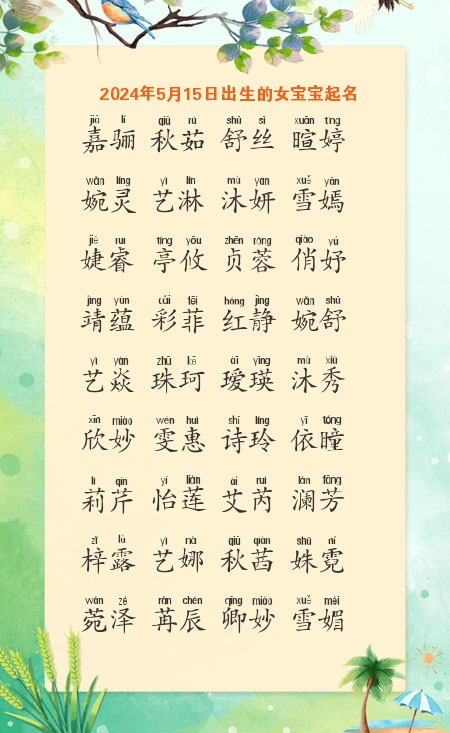 2024年5月15日出生的女宝宝起名
jiā lí qiū rú shū sī xuān tíng
嘉骊 秋茹 舒丝 暄婷
wǎn líng yì lín mù yán xuě yān
婉灵 艺淋 沐妍 雪嫣
jié ruì tíng yōu zhēn róng qiào yú
婕睿 亭攸 贞蓉 俏妤
jìng yùn cǎi fēi hóng jìng wǎn shū
靖蕴 彩菲 红静 婉舒
yì yàn zhū kē ài yīng mù xiù
艺焱 珠珂 瑷瑛 沐秀
xīn miào wén huì shī líng yī tóng
欣妙 雯惠 诗玲 依瞳
lì qín yí lián ài ruì lán fāng
莉芹 怡莲 艾芮 澜芳
zǐ lù yì nà qiū qiàn shū ní
梓露 艺娜 秋茜 姝霓
wǎn zé rǎn chén qīng miào xuě mèi
菀泽 苒辰 卿妙 雪媚